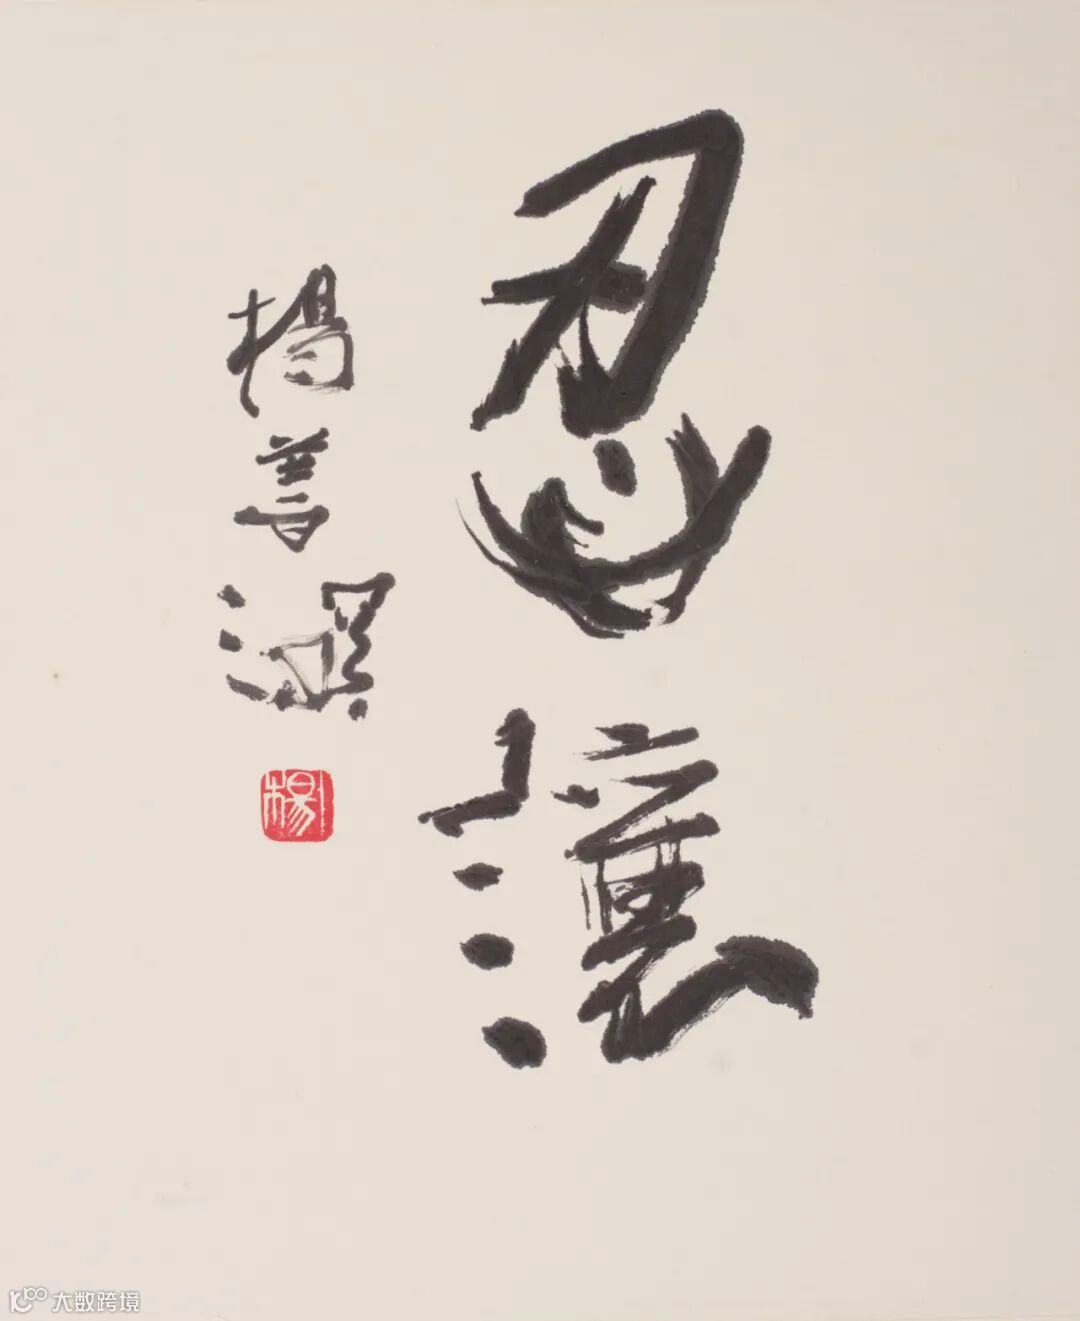 忍讓
楊善深
楊
大数跨境